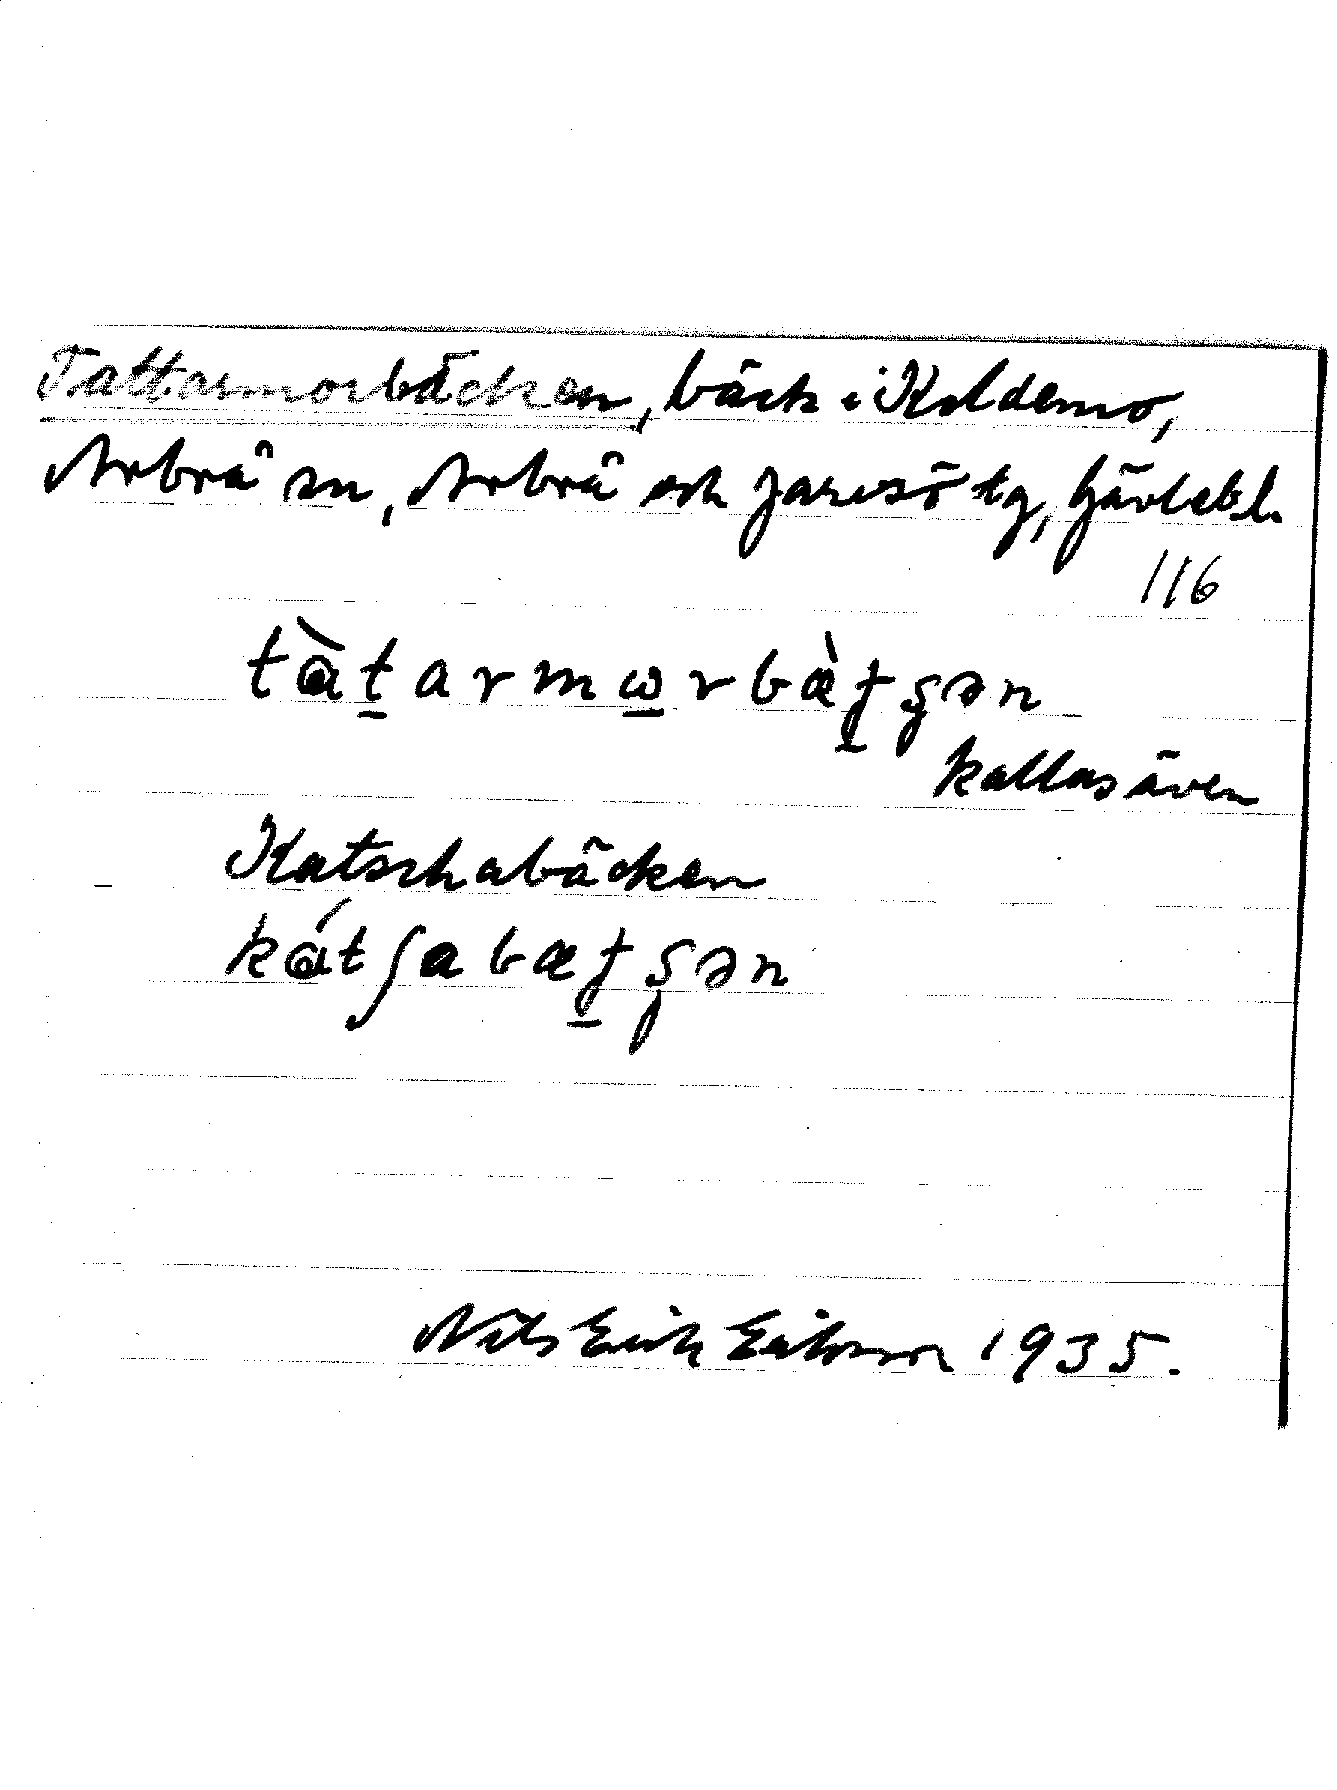 Tattarmorbäcken, bäck i Koldemo,
Arbrå sn, Arbrå och Järvsö tg, Gävlebl.
116
tàt̲armω̲rbæ̀t̲ʂən
kallas även
Katschabäcken
kátʃabæt̲ʂən
Nils Erik Eriksson 1935.